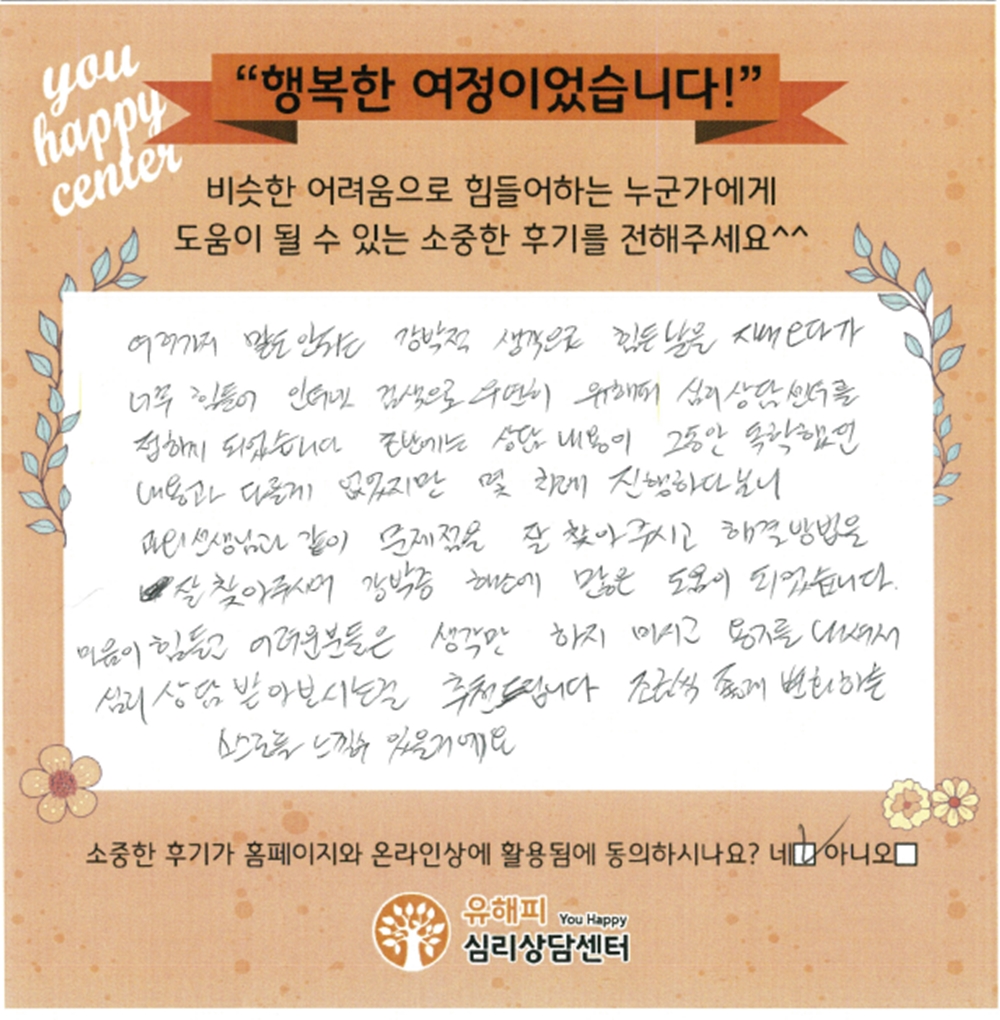 you
happy
center
“행복한 여정이었습니다!”
비슷한 어려움으로 힘들어하는 누군가에게
도움이 될 수 있는 소중한 후기를 전해주세요^^
여러가지 말도안되는 강박적 생각으로 힘든날을 지내오다가
너무 힘들어 인터넷 검색으로 우연히 유해피 심리상담센터를
접하게 되었습니다 초반에는 상담 내용이 그동안 독학했던
내용과 다를게 없었지만 몇 차례 진행하다보니
선생님과 같이 문제점을 잘 찾아주시고 해결방법을
잘 찾아주시며 강박증 해소에 많은 도움이 되었습니다.
마음이 힘들고 어려운분들은 생각만 하지 마시고 용기를 내셔서
심리 상담 받아보시는걸 추천드립니다 조금씩 변화하는
느낄수 있을거에요
소중한 후기가 홈페이지와 온라인상에 활용됨에 동의하시나요? 네 아니오
유해피 You Happy
심리상담센터